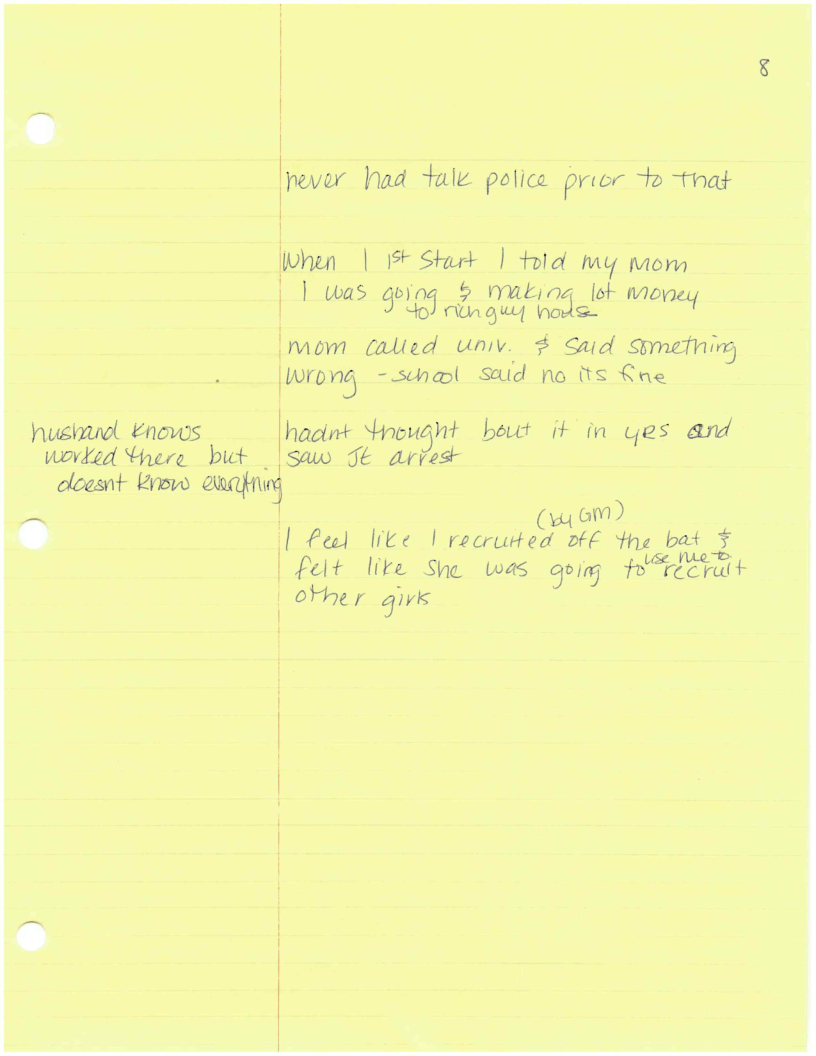 8
never had talk police prior to that
when I 1st start I told my mom
I was going & making lot money
to rich guy house
mom called univ. & said something
wrong - school said no its fine
husband knows
worked there but
doesnt know everything
hadnt thought bout it in yrs and
saw JE arrest
(by GM)
I feel like I recruited off the bat &
use me to
felt like she was going to recruit
other girls